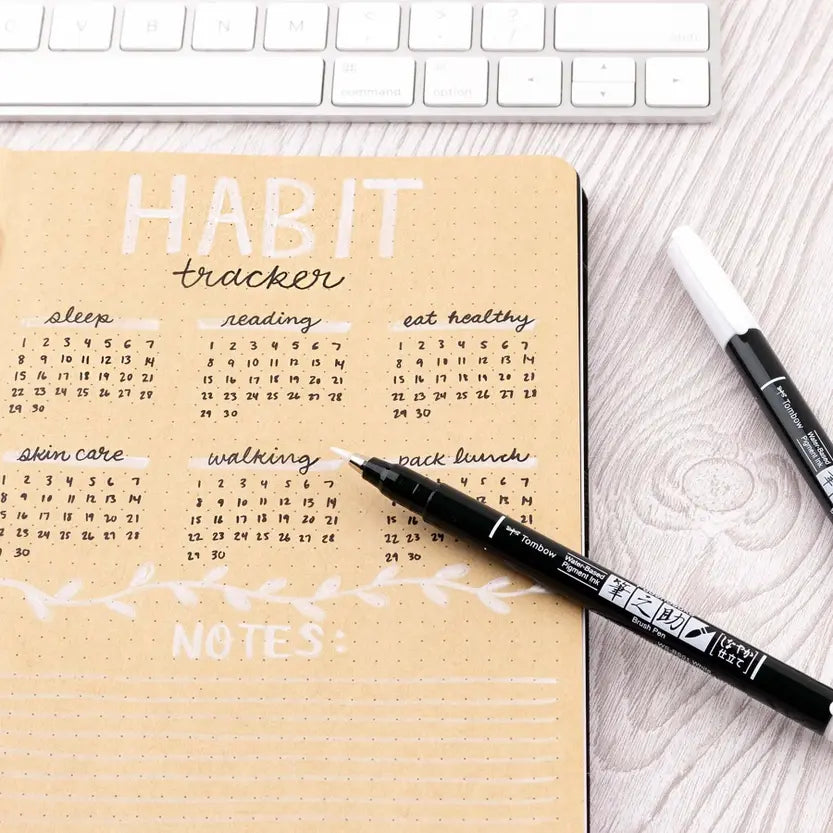 C V B N M < , > . ? / shift
⌘ command option ◄ ▲ ▼ ►
HABIT
tracker
sleep
1 2 3 4 5 6 7
8 9 10 11 12 13 14
15 16 17 18 19 20 21
22 23 24 25 26 27 28
29 30
reading
1 2 3 4 5 6 7
8 9 10 11 12 13 14
15 16 17 18 19 20 21
22 23 24 25 26 27 28
29 30
eat healthy
1 2 3 4 5 6 7
8 9 10 11 12 13 14
15 16 17 18 19 20 21
22 23 24 25 26 27 28
29 30
skin care
1 2 3 4 5 6 7
8 9 10 11 12 13 14
15 16 17 18 19 20 21
22 23 24 25 26 27 28
30
walking
1 2 3 4 5 6 7
8 9 10 11 12 13 14
15 16 17 18 19 20 21
22 23 24 25 26 27 28
29 30
pack lunch
4 5 6 7
13 14
15 16 21
22 23 24
29 30
NOTES:
Tombow
Water-Based
Pigment Ink
筆之助
Brush Pen
しなやか
仕立て
Tombow
Water-Based
Pigment Ink